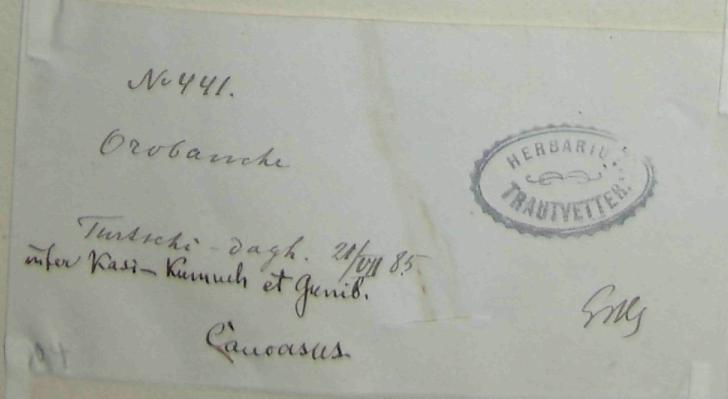 No 441.
Orobanche
HERBARIUM
TRAUTVETTER.
Turtschi-dagh. 21/VII 85
inter Kasi-Kumuch et Gunib.
Caucasus.